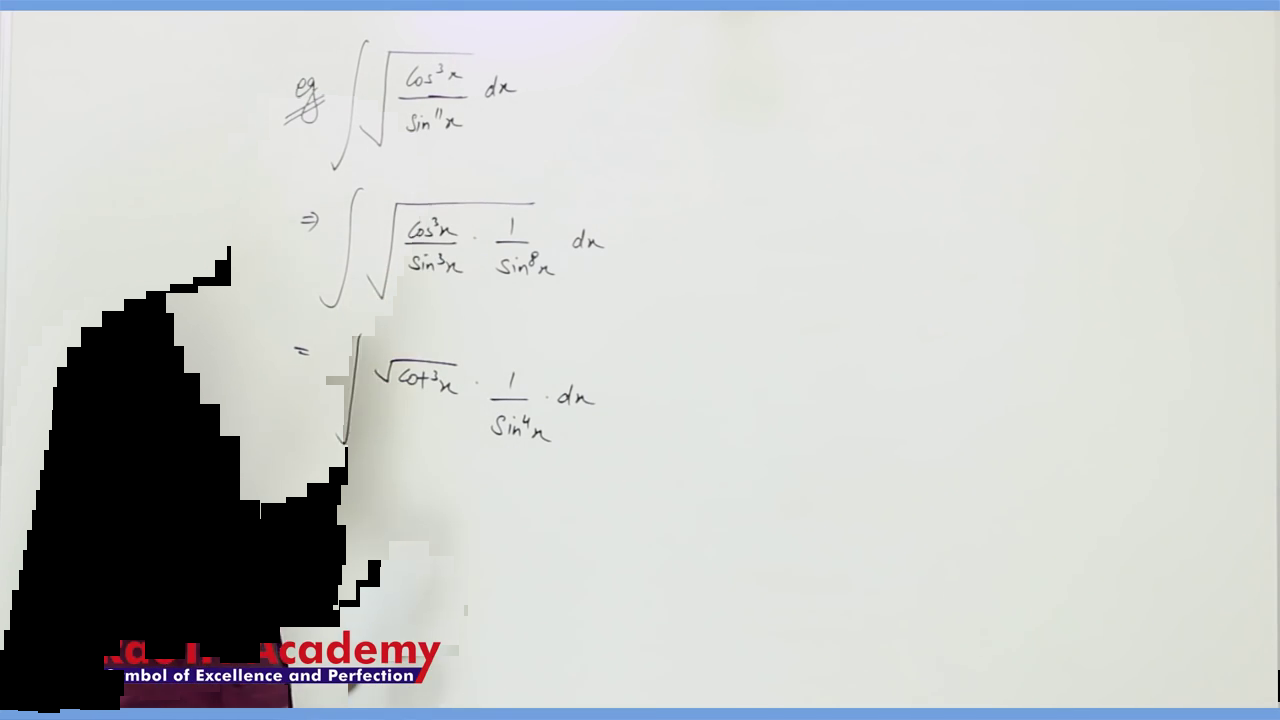 eg ∫ √(cos³x / sin¹¹x) dx
⇒ ∫ √(cos³x / sin³x · 1 / sin⁸x) dx
= ∫ √cot³x · 1 / sin⁴x · dx
Academy
of Excellence and Perfection